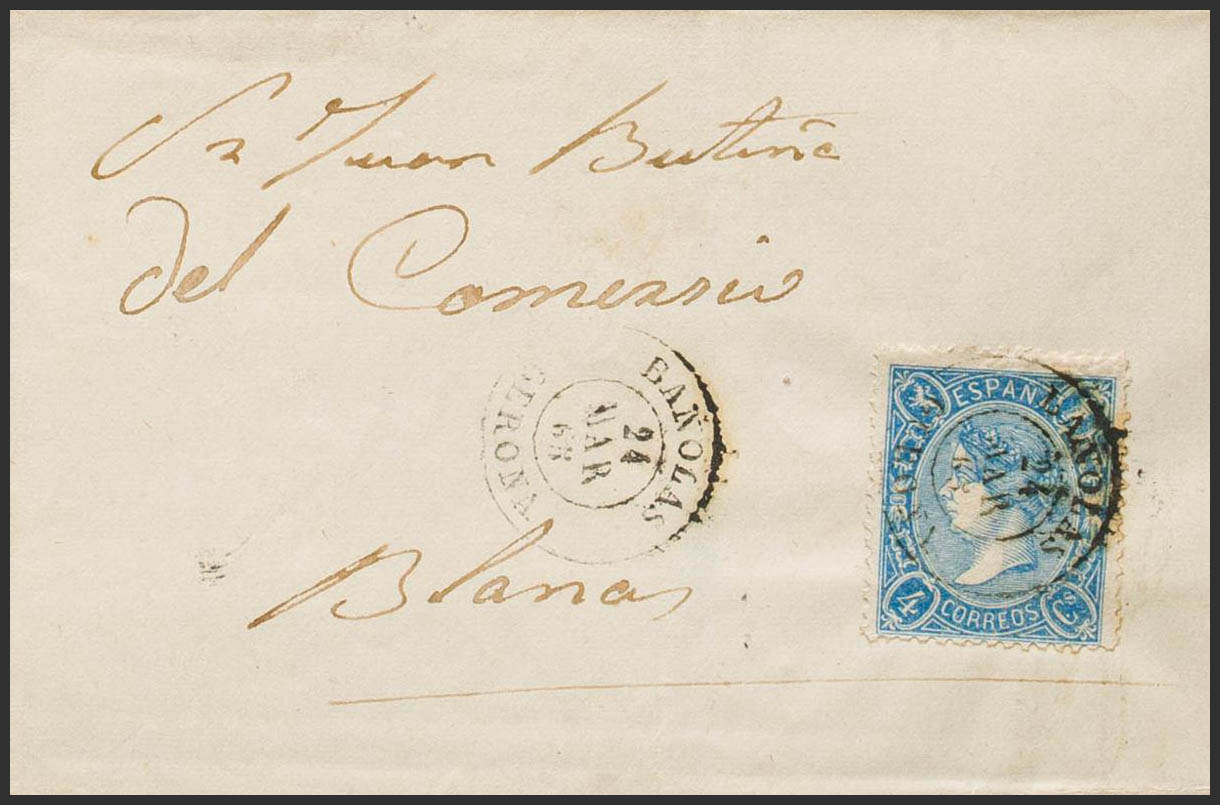 Sr Juan Butiña
del Comersio
BAÑOLAS
24
MAR
65
GERONA
ESPAÑA
BAÑOLAS
24
MAR
Blanas
4 CORREOS Cs